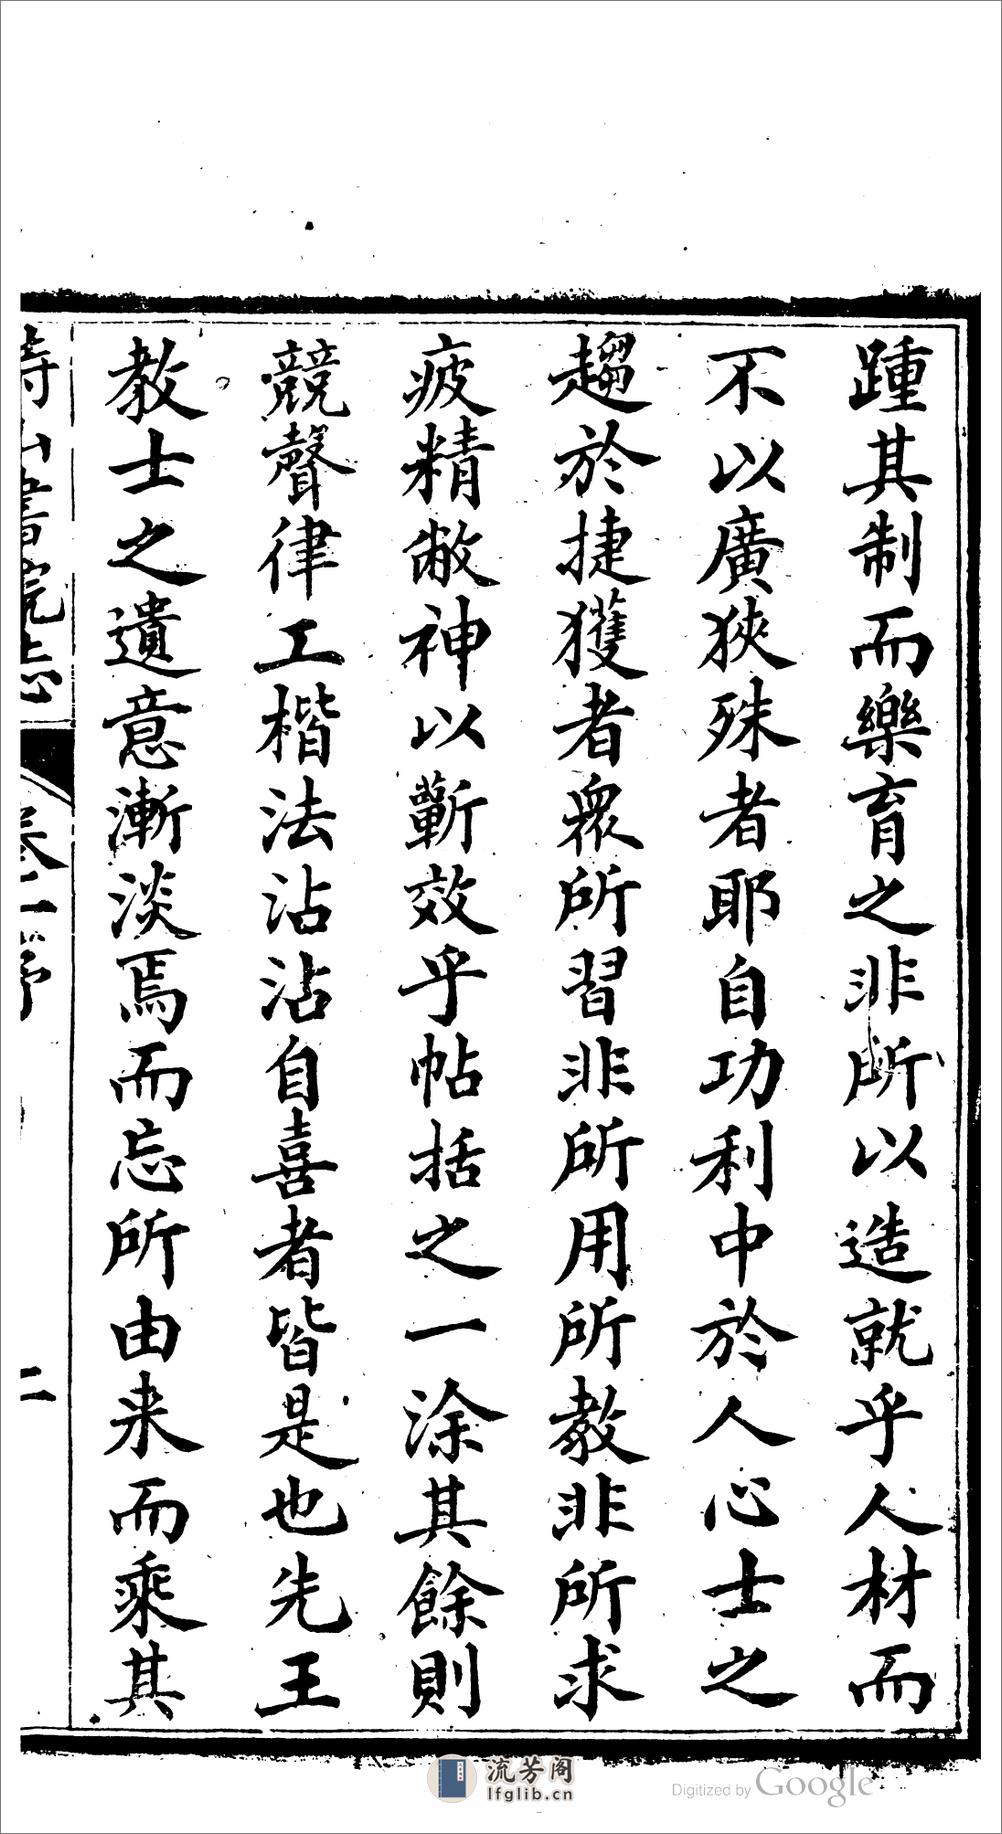 踵其制而樂育之非所以造就乎人材而
不以廣狹殊者耶自功利中於人心士之
趨於捷獲者衆所習非所用所教非所求
疲精敝神以蘄效乎帖括之一涂其餘則
競聲律工楷法沾沾自喜者皆是也先王
教士之遺意漸淡焉而忘所由来而乘其
書院志
卷一序
二
流芳阁
lfglib.cn
Digitized by Google